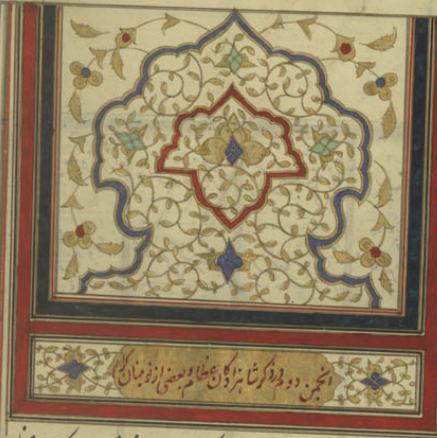 انجمن دوم در ذکر شاهزادگان عظام و بعضی از نوئینان کرام